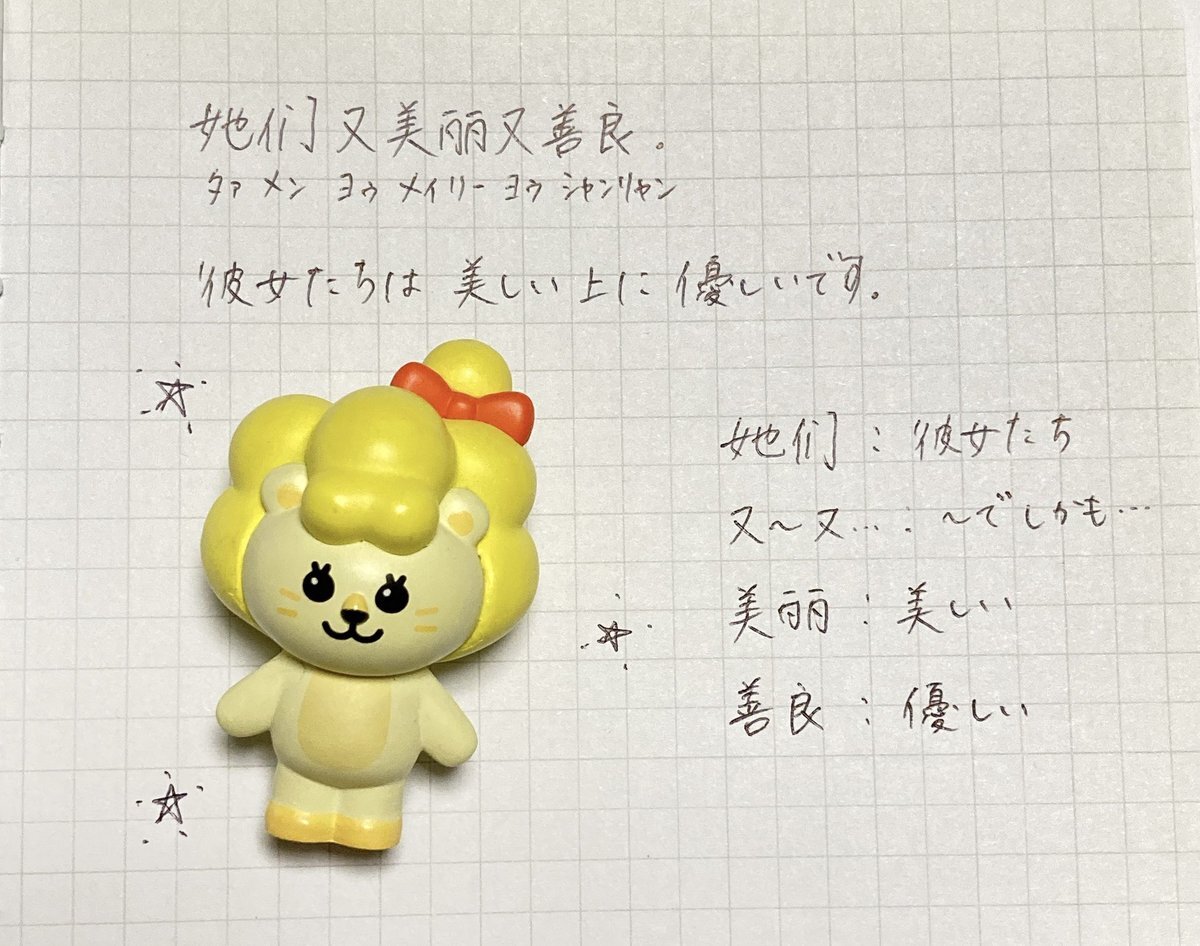 她们又美丽又善良。
タァ メン ヨウ メイリー ヨウ シャンリャン
彼女たちは 美しい上に 優しいです。
她们：彼女たち
又～又…：～でしかも…
美丽：美しい
善良：優しい